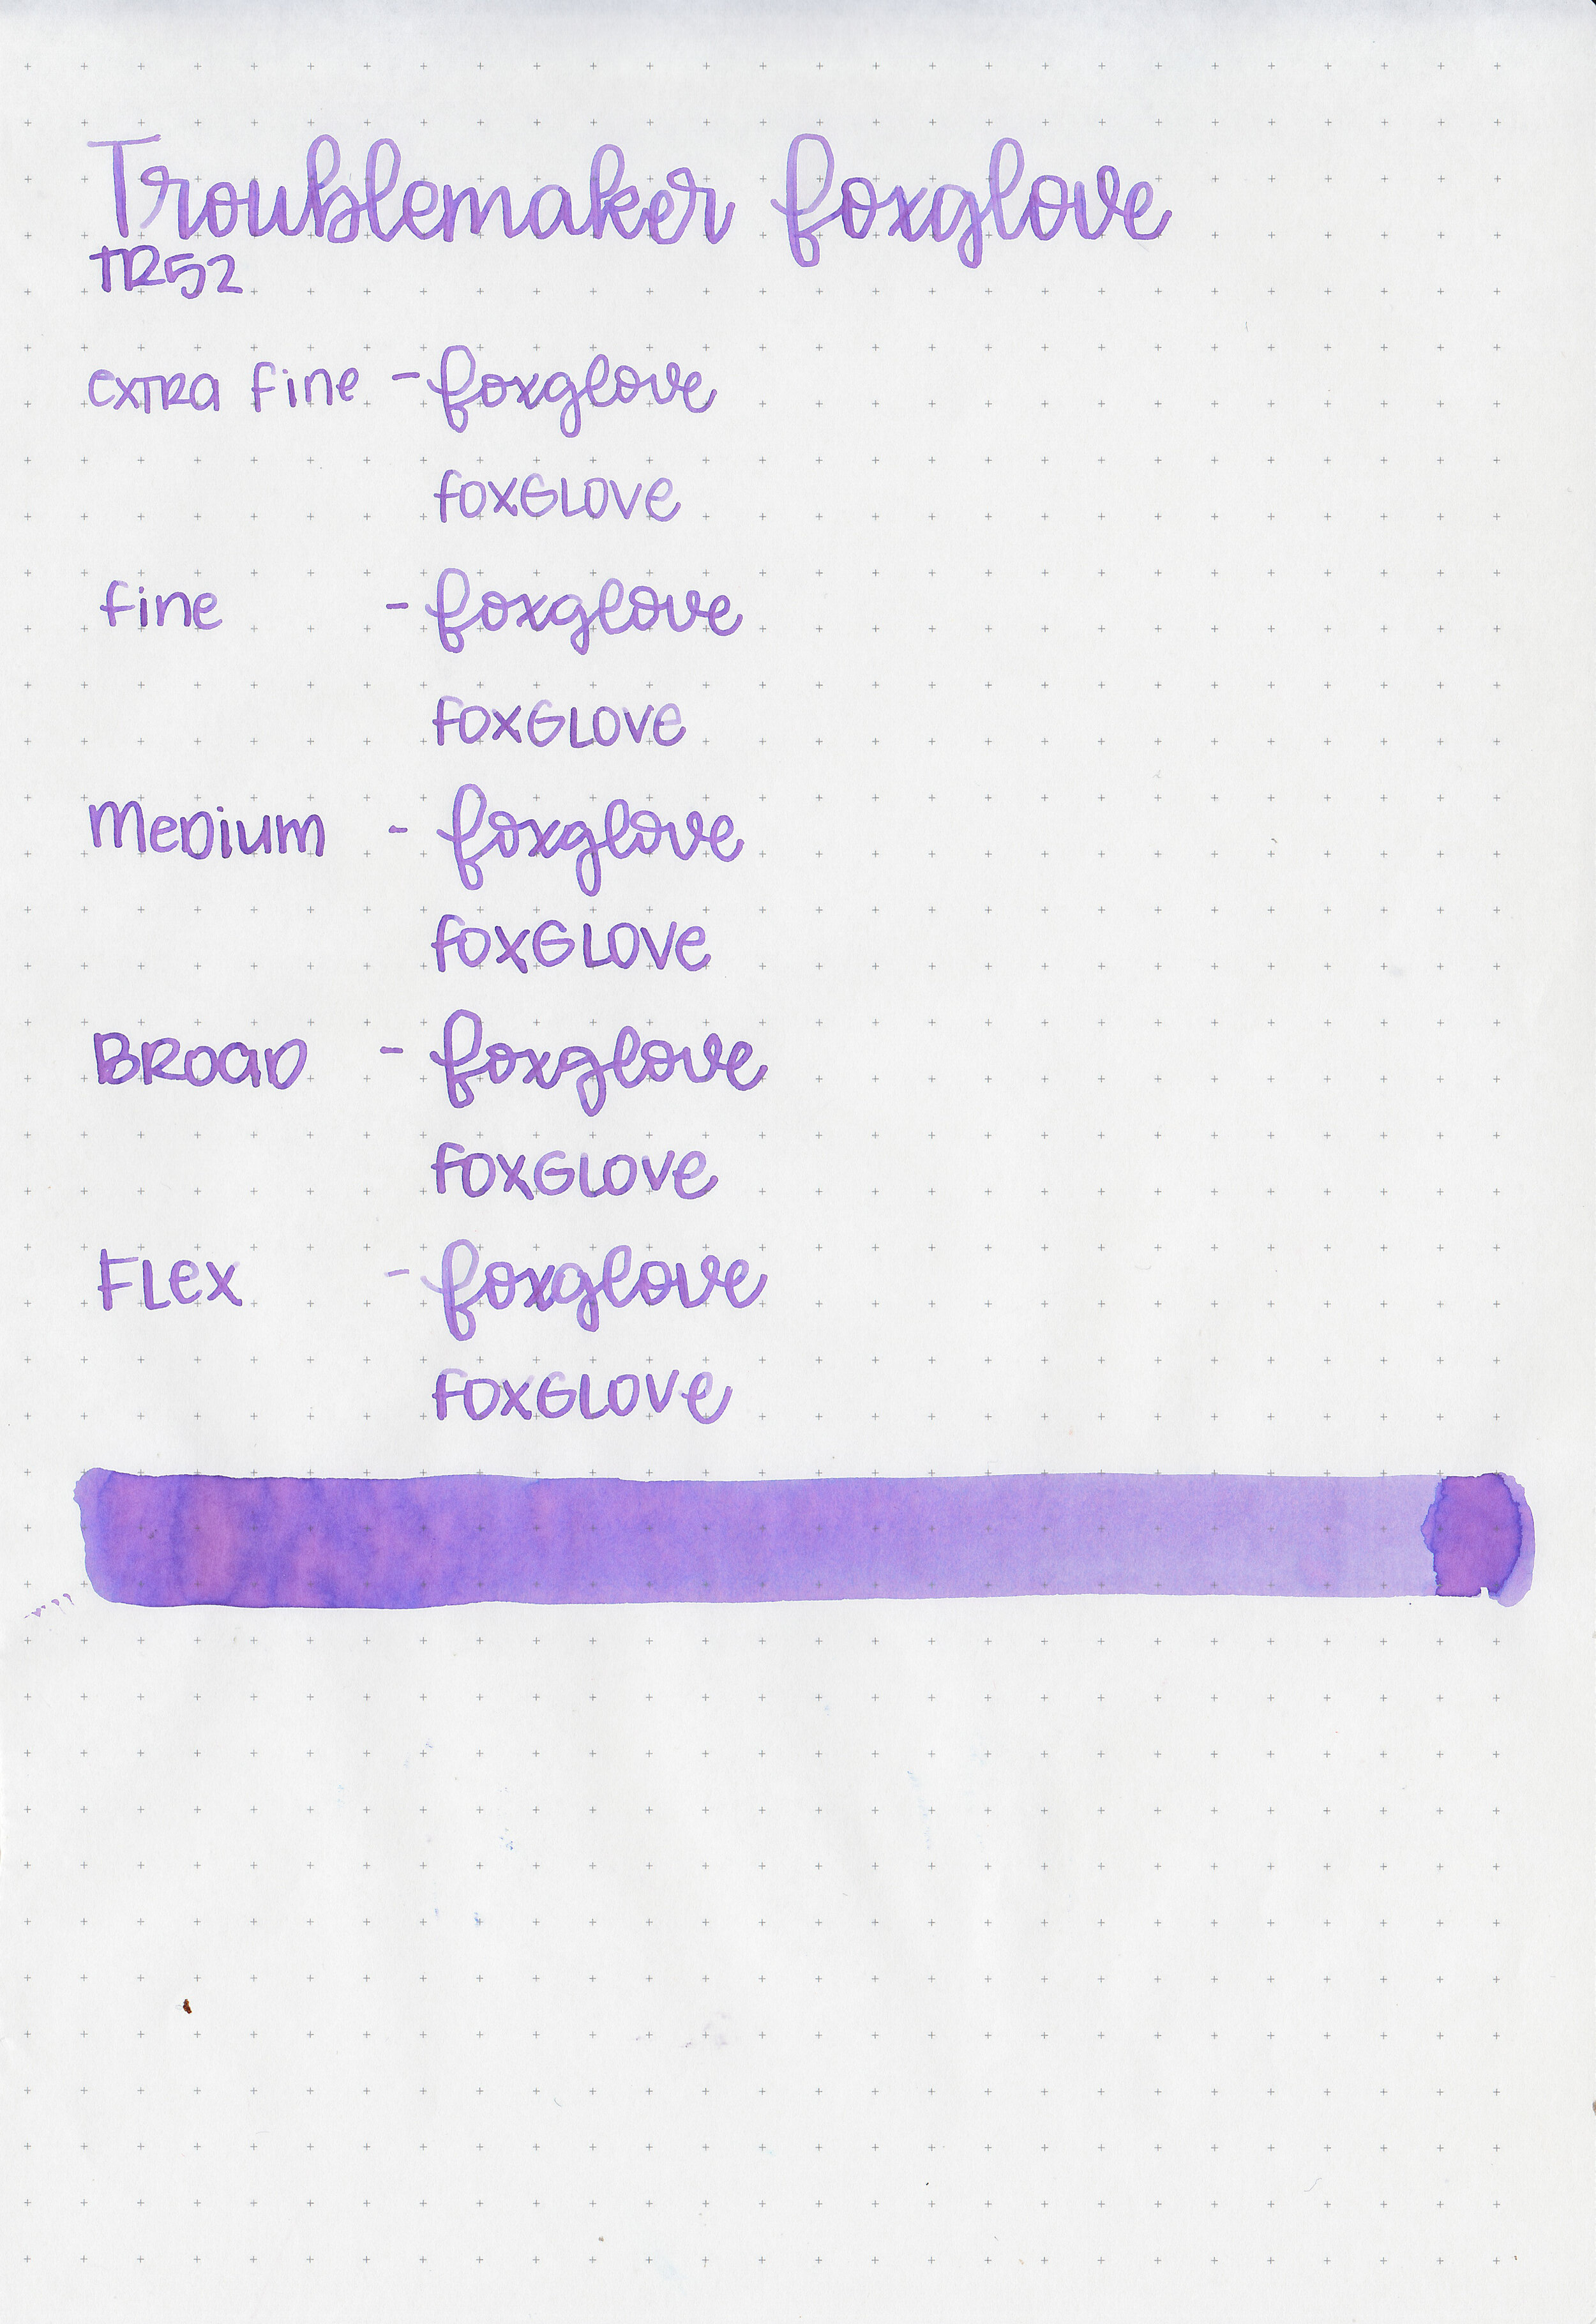 Troublemaker foxglove
TR52
extra fine - foxglove
foxglove
fine - foxglove
foxglove
Medium - foxglove
foxglove
Broad - foxglove
foxglove
Flex - foxglove
foxglove